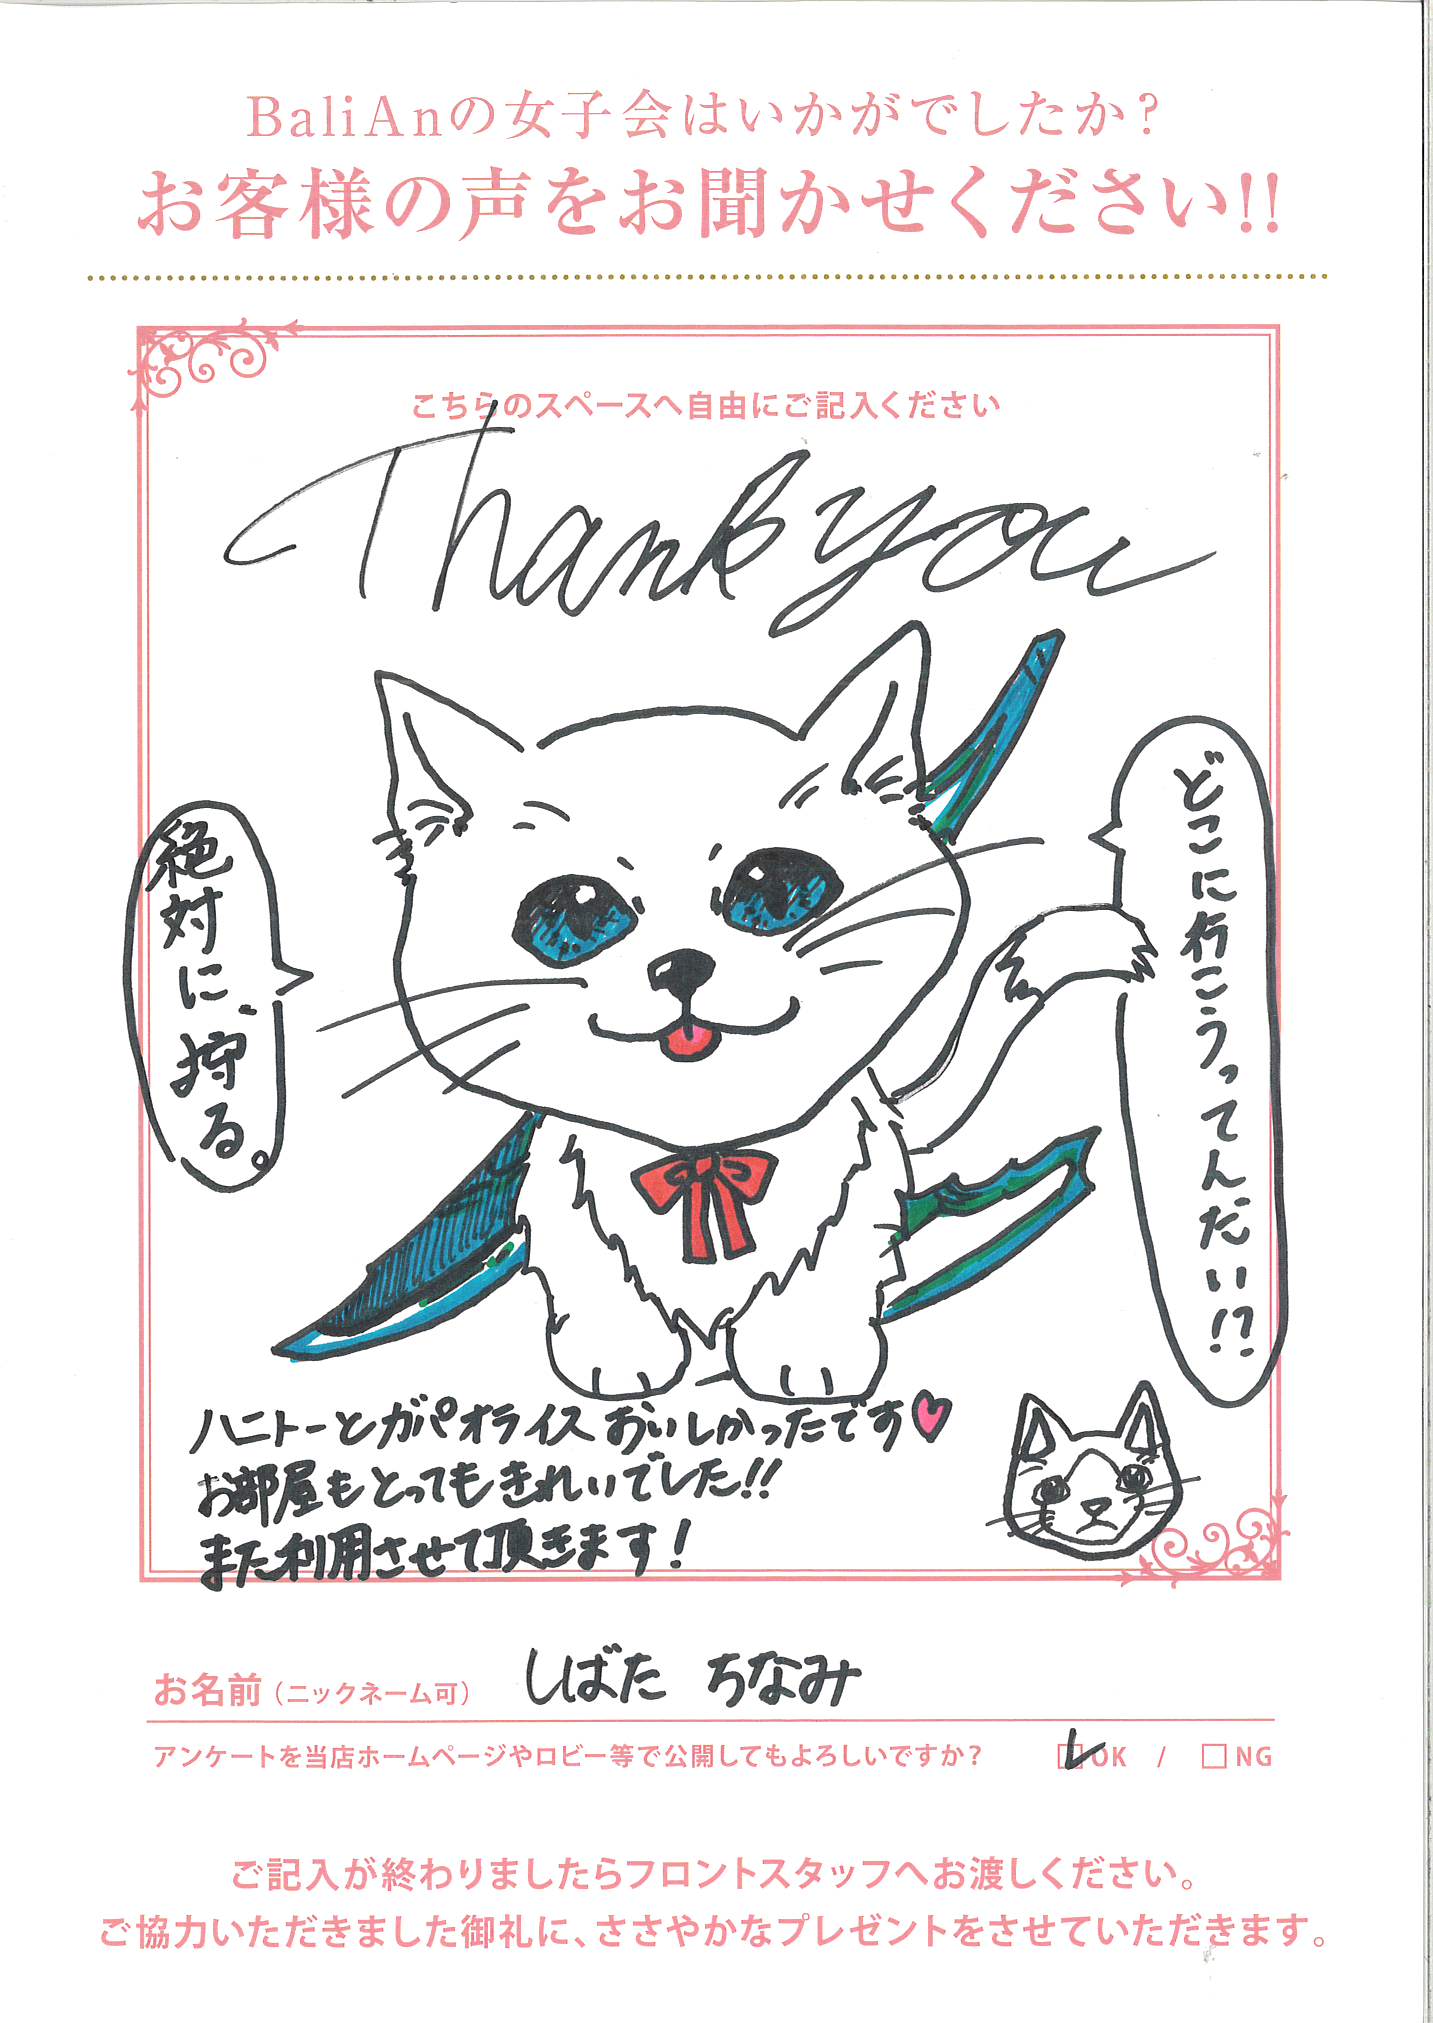 BaliAnの女子会はいかがでしたか?
お客様の声をお聞かせください!!
こちらのスペースへ自由にご記入ください
Thank you
どこに行こうってんだい!?
絶対に、狩る。
ハニトーとガパオライスおいしかったです♥
お部屋もとってもきれいでした!!
また利用させて頂きます!
お名前(ニックネーム可) しばた ちなみ
アンケートを当店ホームページやロビー等で公開してもよろしいですか? □OK / □NG
ご記入が終わりましたらフロントスタッフへお渡しください。
ご協力いただきました御礼に、ささやかなプレゼントをさせていただきます。